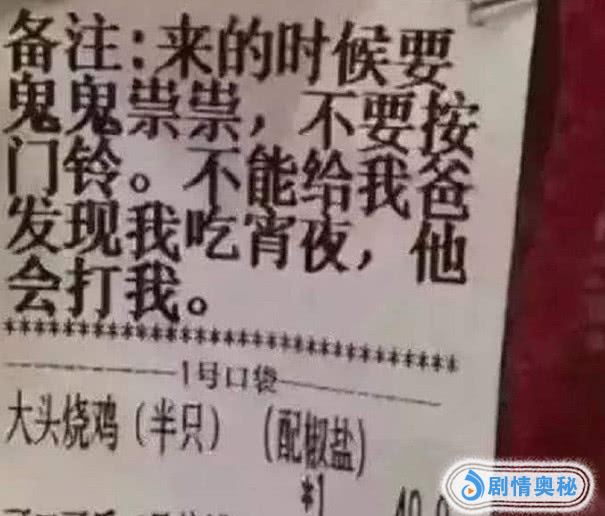 备注:来的时候要
鬼鬼祟祟，不要按
门铃。不能给我爸
发现我吃宵夜，他
会打我。
********************************************
1号口袋
大头烧鸡（半只）（配椒盐）
*1
剧情奥秘